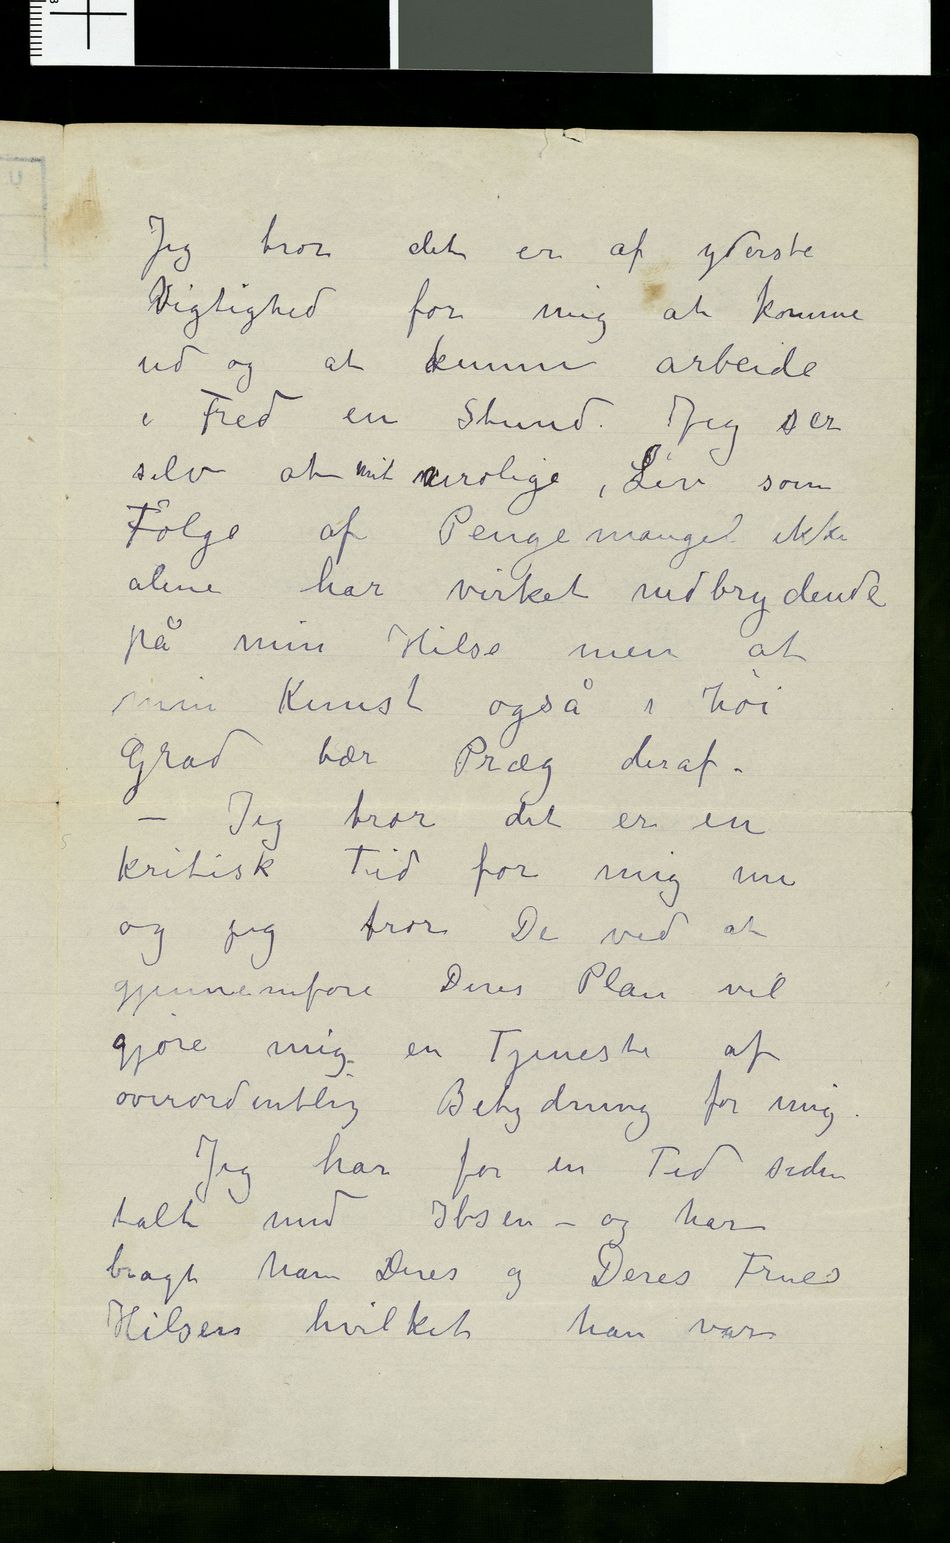 Jeg tror det er af yderste
Vigtighed for mig at komme
ud og at kunne arbeide
i Fred en Stund. Jeg ser
selv at mit urolige, Liv som
Følge af Pengemangel ikke
alene har virket nedbrydende
på min Helse men at
min Kunst også i høi
Grad bær Præg deraf.
– Jeg tror det er en
kritisk Tid for mig nu
og jeg tror De ved at
gjennemføre Deres Plan vil
gjøre mig en Tjeneste af
overordentlig Betydning for mig.
Jeg har for en Tid siden
talt med Ibsen – og har
bragt ham Deres og Deres Frues
Hilsen hvilket han var